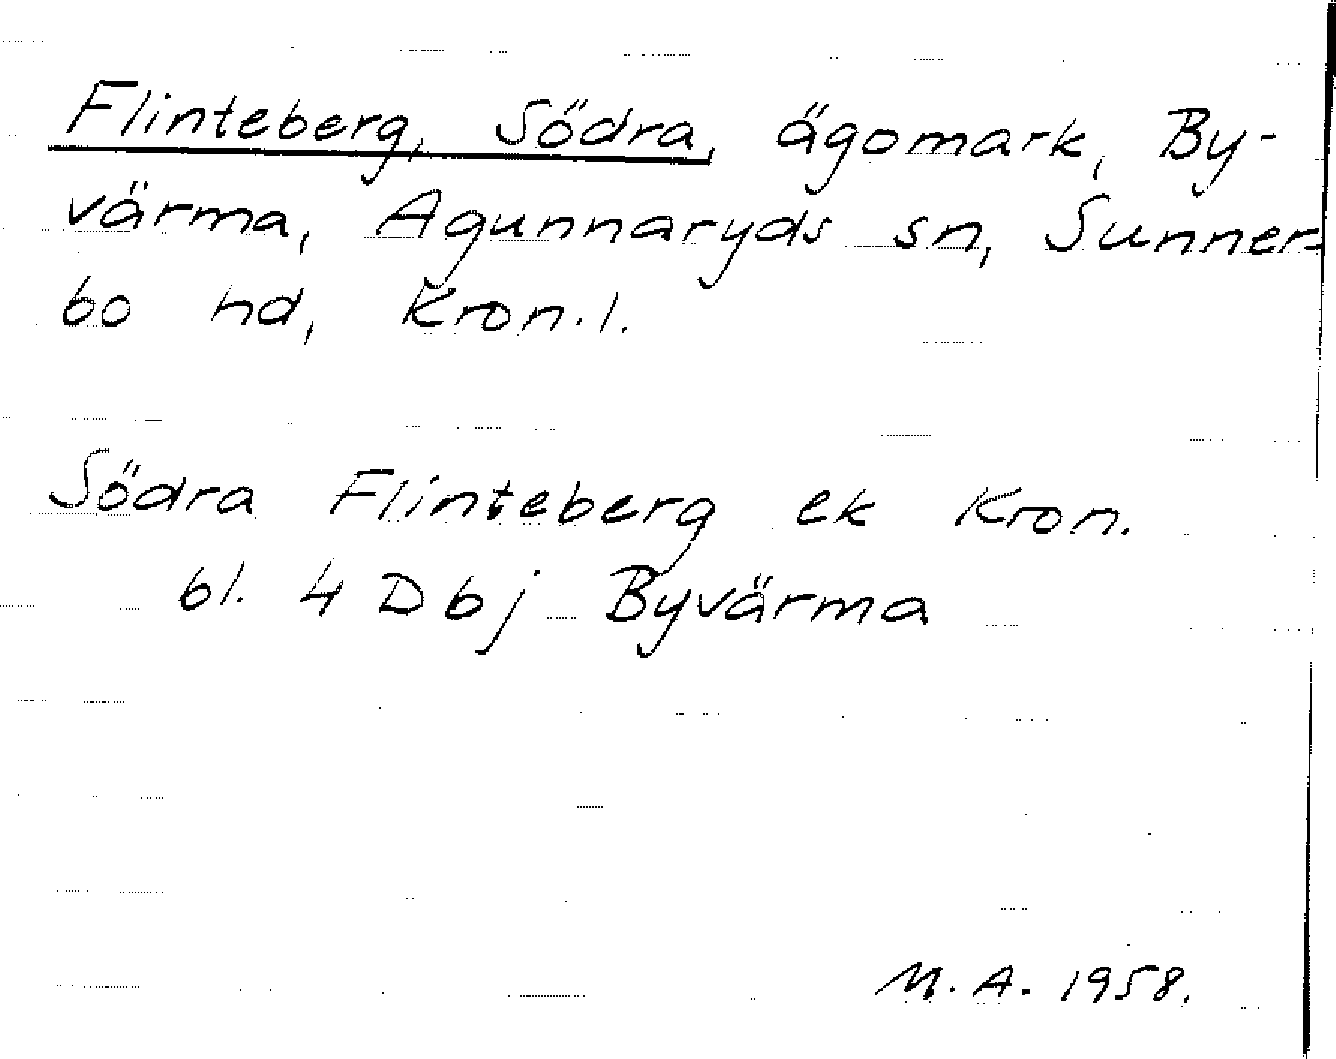 Flinteberg, Södra, ägomark, By-
värma, Agunnaryds sn, Sunner-
bo hd, Kron.l.
Södra Flinteberg ek Kron.
bl. 4 D b j Byvärma
M.A. 1958.